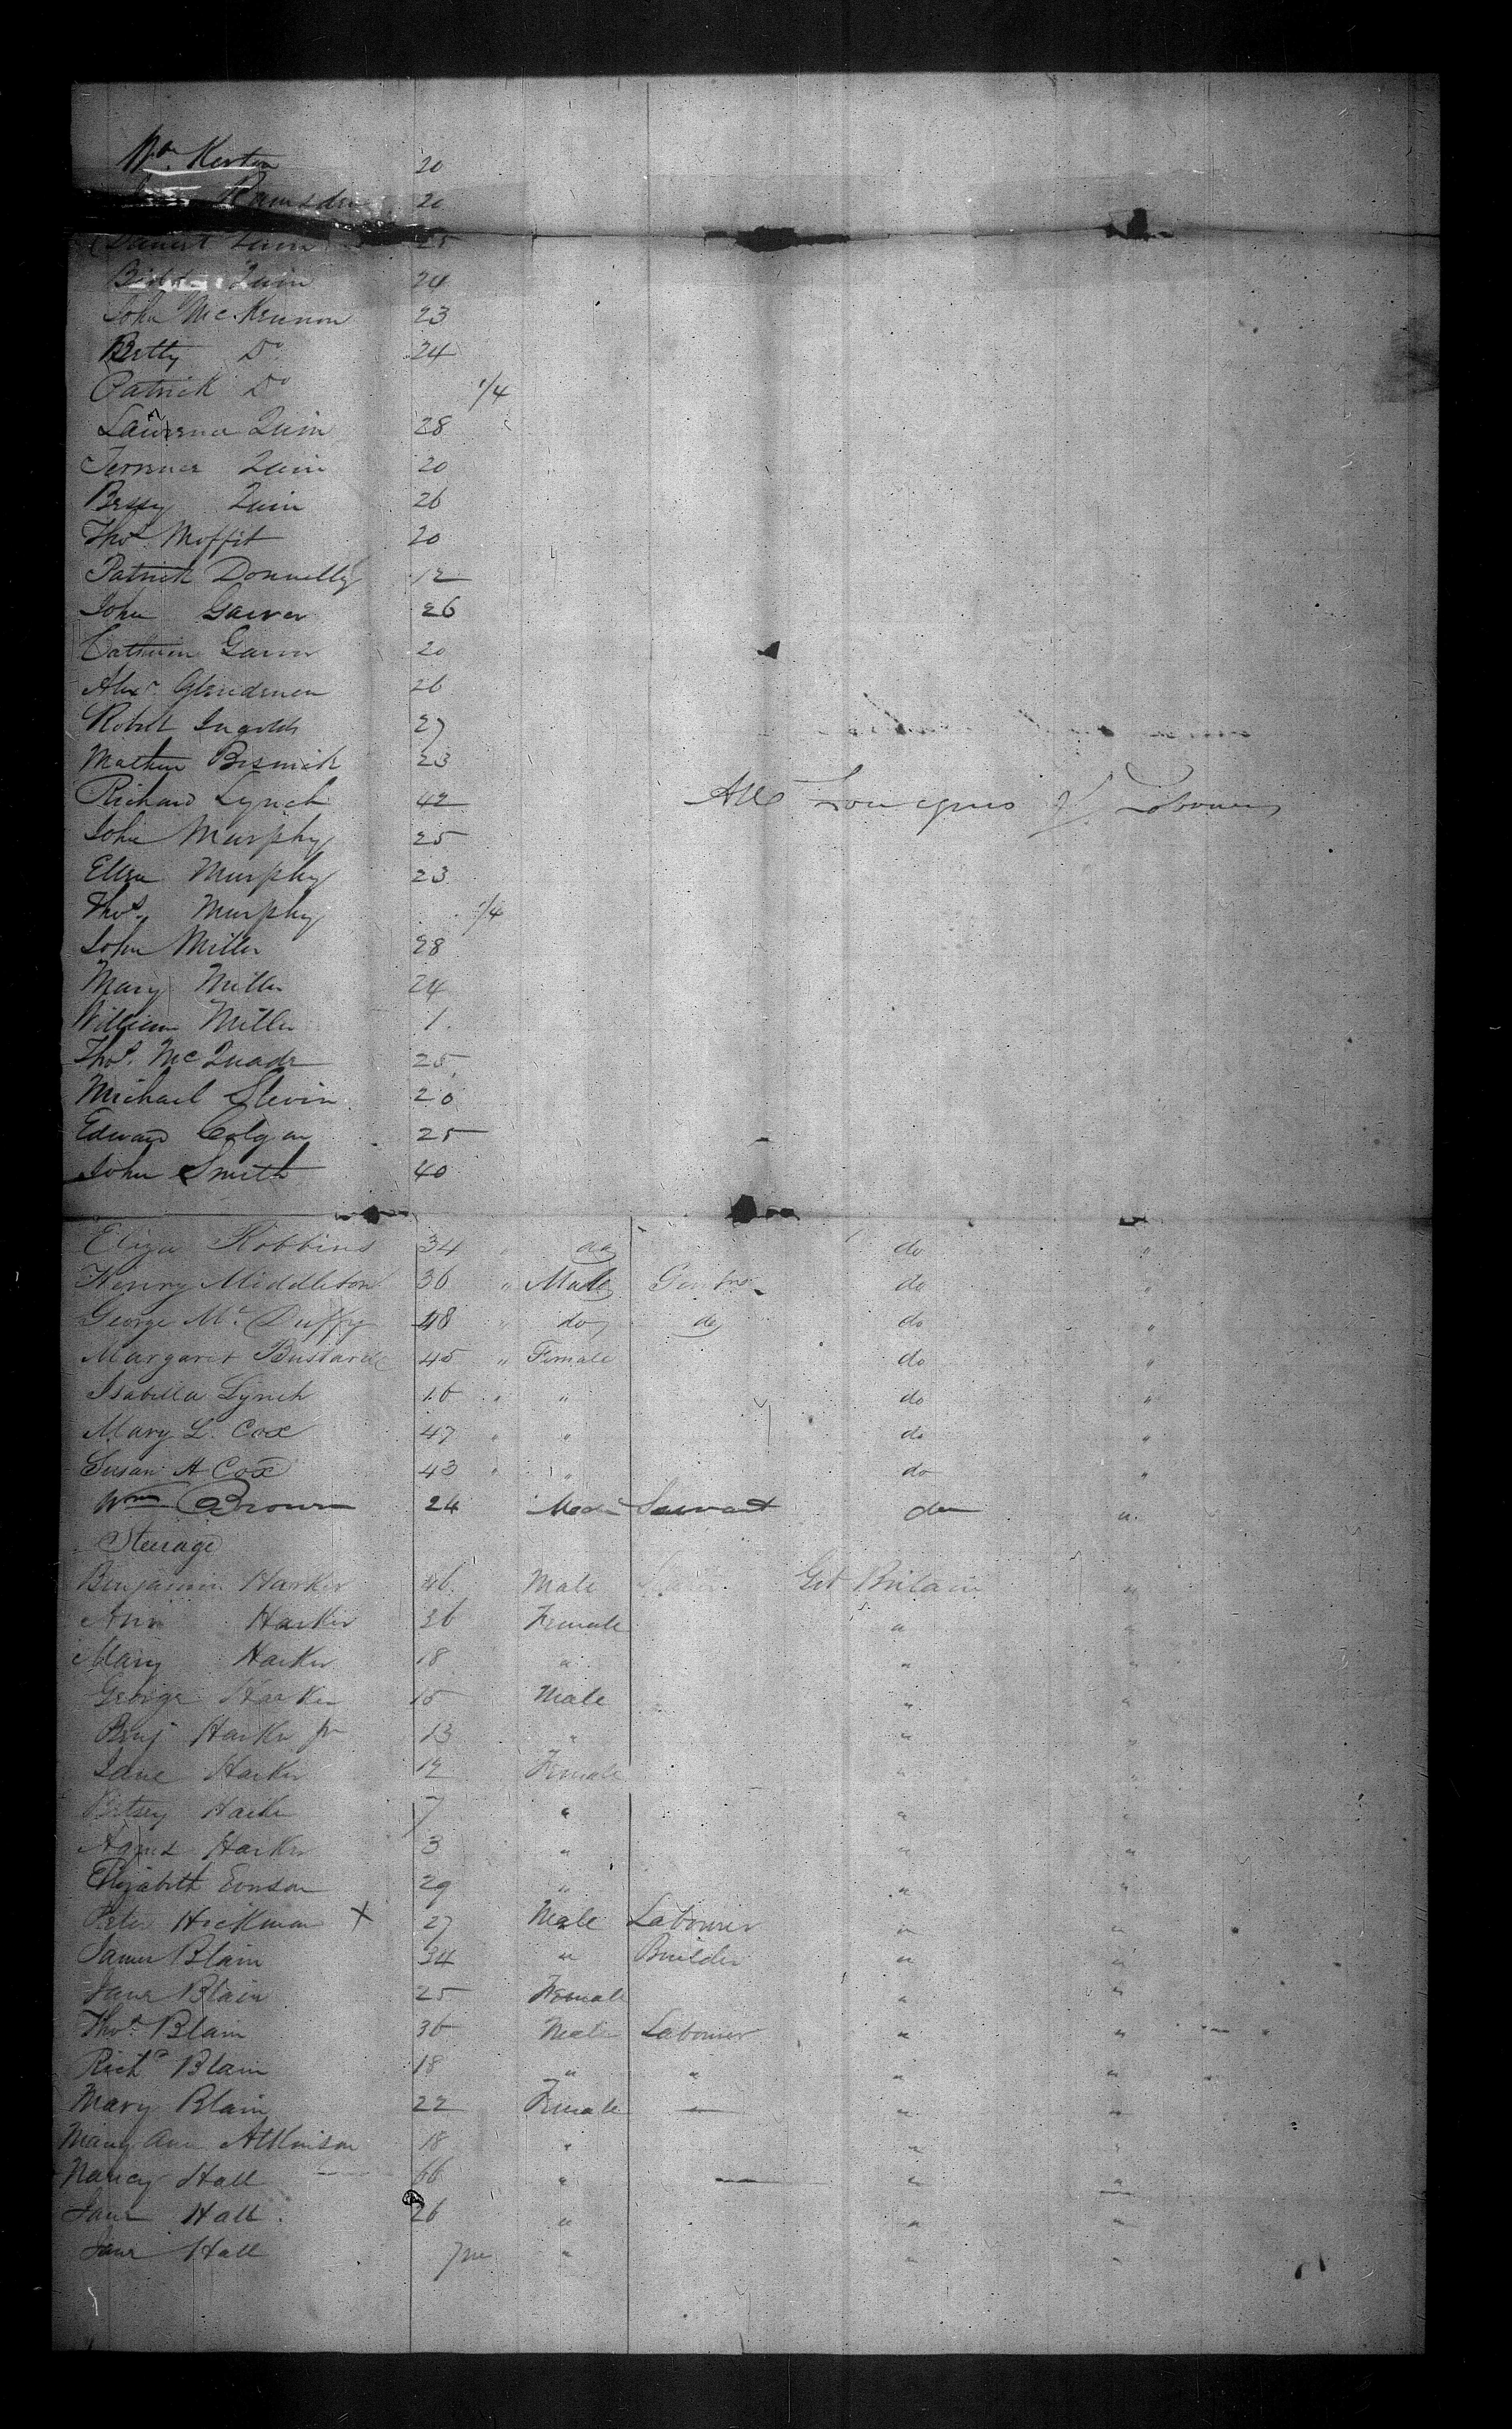 Wm. Kerton 20
Ramsden 20
Daniel Quin 25
Quin 24
John McKennon 23
Betty Do 24
Patrick Do 1/4
Lawrence Quin 28
Terrence Quin 20
Bessy Quin 26
Thos. Moffit 20
Patrick Donnelly 12
John Garver 26
Cathrien Garver 20
Alexr. Glendenen 26
Robert Ingolds 27
Mathew 23
Richard Lynch 42 All & Labourers
John Murphy 25
Ellen Murphy 23
Thos. Murphy 1/4
John Miller 28
Mary Miller 24
William Miller 1
Thos. McQuade 25
Michael Slevin 20
Edward Colgan 25
John Smith 40
Eliza Robbins 34 " do do "
Henry Middleton 36 " Male Gentn. do "
George Mc. Duffy 48 " do do do "
Margaret Bustard 45 " Female do "
Isabella Lynch 16 " " do "
Mary L. Cox 47 " " do "
Susan A Cox 43 " " do "
Wm Brown 24 Male Servant do "
Steerage
Benjamin Harker 46 Male Gt Britain "
Ann Harker 36 Female " "
Mary Harker 18 " " "
George Harker 15 Male " "
Benj Harker jr 13 " " "
Jane Harker 12 Female " "
Betsey Harker 7 " " "
Agnes Harker 3 " " "
Elizabeth Evnson 29 " " "
Peter Hickman X 27 Male Labourer " "
James Blain 34 " Builder " "
Jane Blain 25 Female " "
Thos. Blain 36 Male Labourer " "
Richd Blain 18 " " " "
Mary Blain 22 Female — " "
Mary Ann Atkinson 18 " " "
Nancy Hall 66 " — " "
Jane Hall 26 " " "
Jane Hall 7m " " "